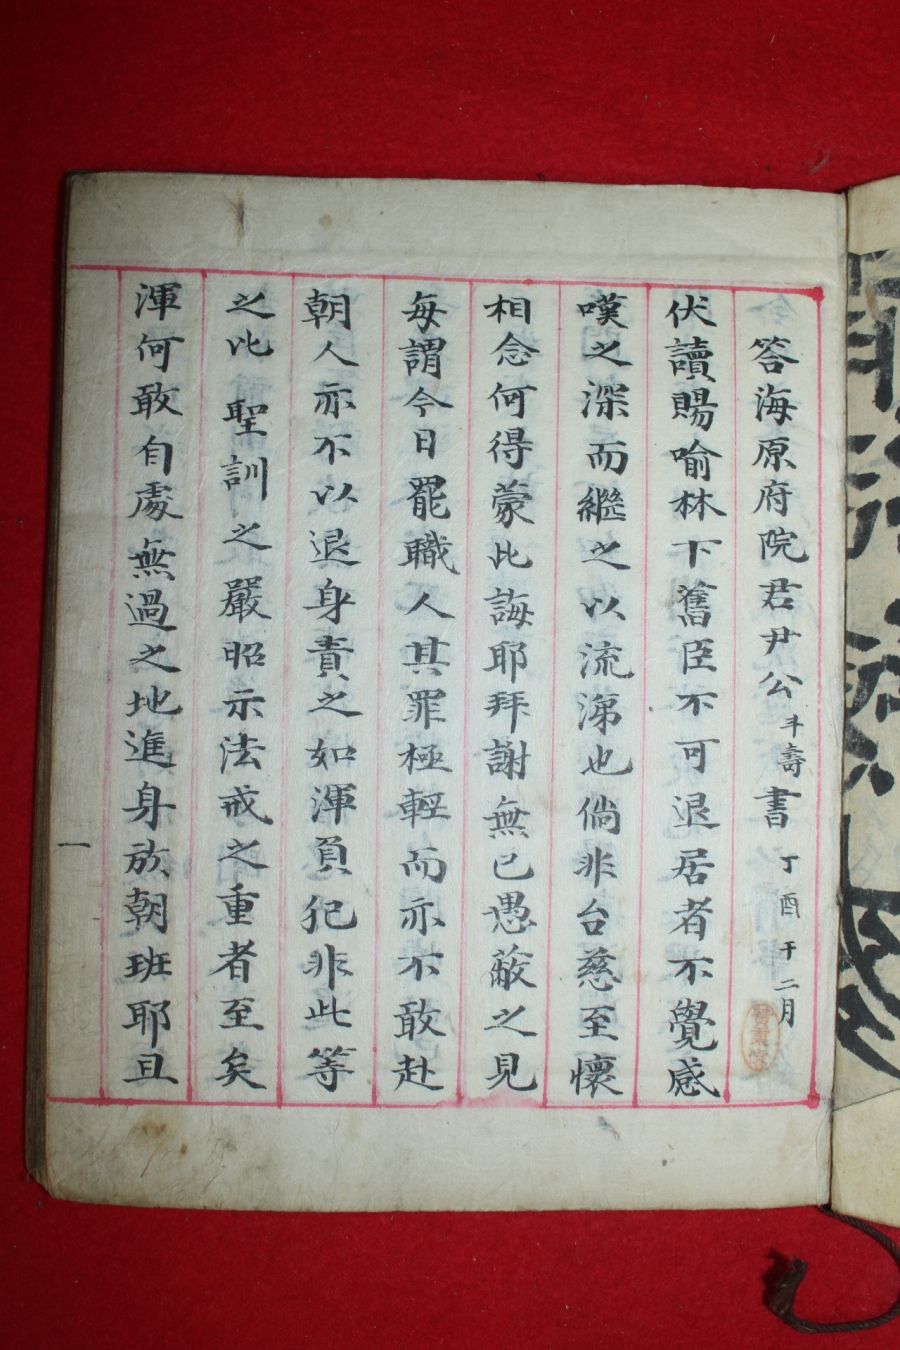 答海原府院君尹公斗壽書丁酉十二月
伏讀賜喻林下舊臣不可退居者不覺感
嘆之深而繼之以流涕也倘非台慈至懷
相念何得蒙此誨耶拜謝無已愚蔽之見
每謂今日罷職人其罪極輕而亦不敢赴
朝人亦不以退身責之如渾負犯非此等
之比聖訓之嚴昭示法戒之重者至矣
渾何敢自處無過之地進身於朝班耶且
一